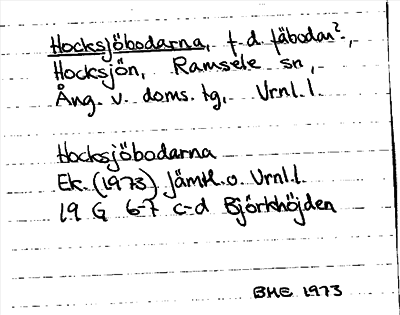 Hocksjöbodarna, f.d. fäbodar?,
Hocksjön, Ramsele sn,
Ång. v. doms. tg, Vrnl. l.
Hocksjöbodarna
Ek. (1973) Jämtl. o. Vrnl. l.
19 G 6-7 c-d Björkhöjden
BHE 1973